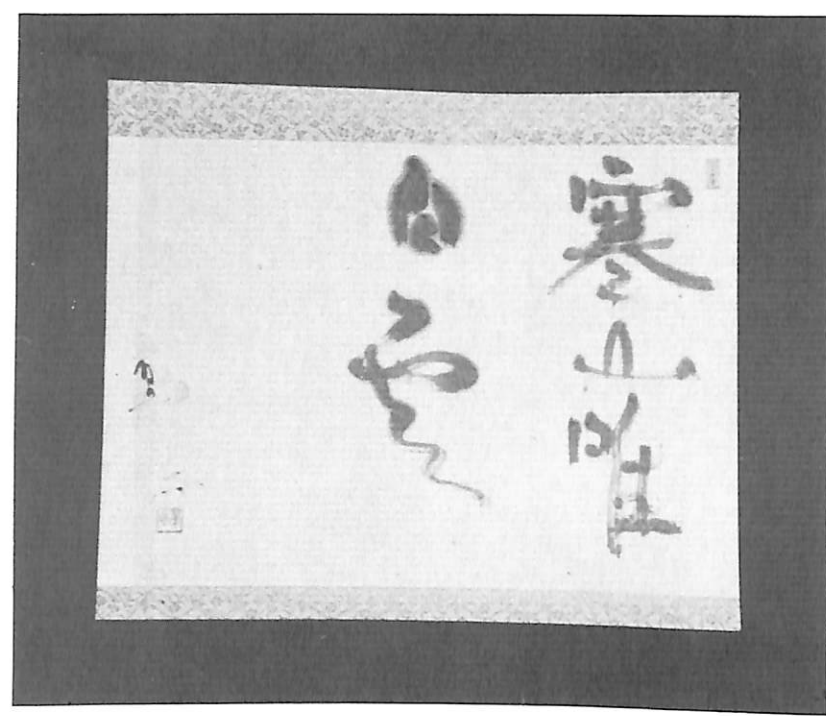 寒山唯
白雲